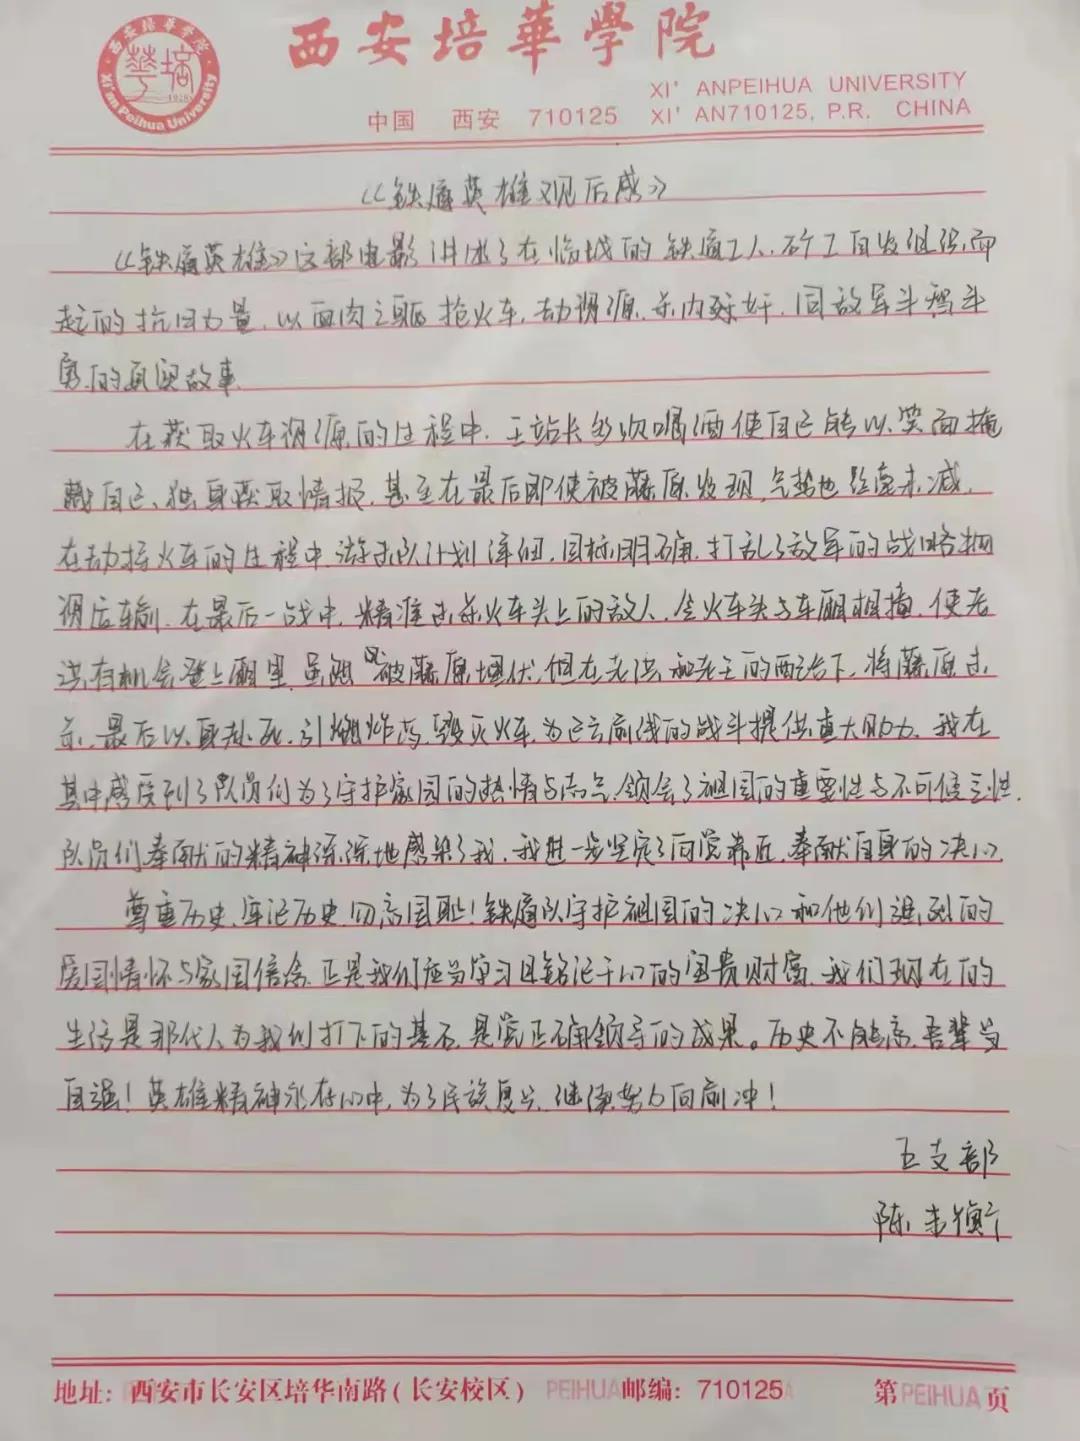 西安培華學院
XI' ANPEIHUA UNIVERSITY
中国 西安 710125 XI' AN710125, P.R. CHINA
西安培華学院
Xi'an Peihua University
1928
《铁道英雄观后感》
《铁道英雄》这部电影讲述了在临城的铁道工人、矿工自发组织而
起的抗日力量,以血肉之躯抢火车,劫资源,杀内奸,同敌军斗智斗
勇的真实故事。
在获取火车资源的过程中,王站长多次喝酒使自己能以笑面掩
藏自己、独身获取情报,甚至在最后即使被藤原发现,气势也丝毫未减,
在劫持火车的过程中,游击队计划详细,目标明确,打乱了敌军的战略物
资运输,在最后一战中,精准击杀火车头上的敌人,令火车头与车厢相撞,使老
洪有机会登上厢里,虽被藤原埋伏,但在老洪和老王的配合下,将藤原击
杀,最后以身赴死,引燃炸药,毁灭火车,为前线的战斗提供重大助力,我在
其中感受到了队员们为了守护家园的热情与志气,领会了祖国的重要性与不可侵
队员们奉献的精神深深地感染了我,我进一步坚定了向党靠近,奉献自身的决心,
尊重历史,牢记历史,勿忘国耻!铁道队守护祖国的决心和他们强烈的
爱国情怀与家国信念,正是我们应当学习且铭记于心的宝贵财富,我们现在的
生活是那代人为我们打下的基石,是党正确领导的成果。历史不能忘,吾辈当
自强!英雄精神永存心中,为了民族复兴,继续努力向前冲!
五支部
陈
地址:西安市长安区培华南路(长安校区) PEIHUA 邮编:710125 第 PEIHUA 页